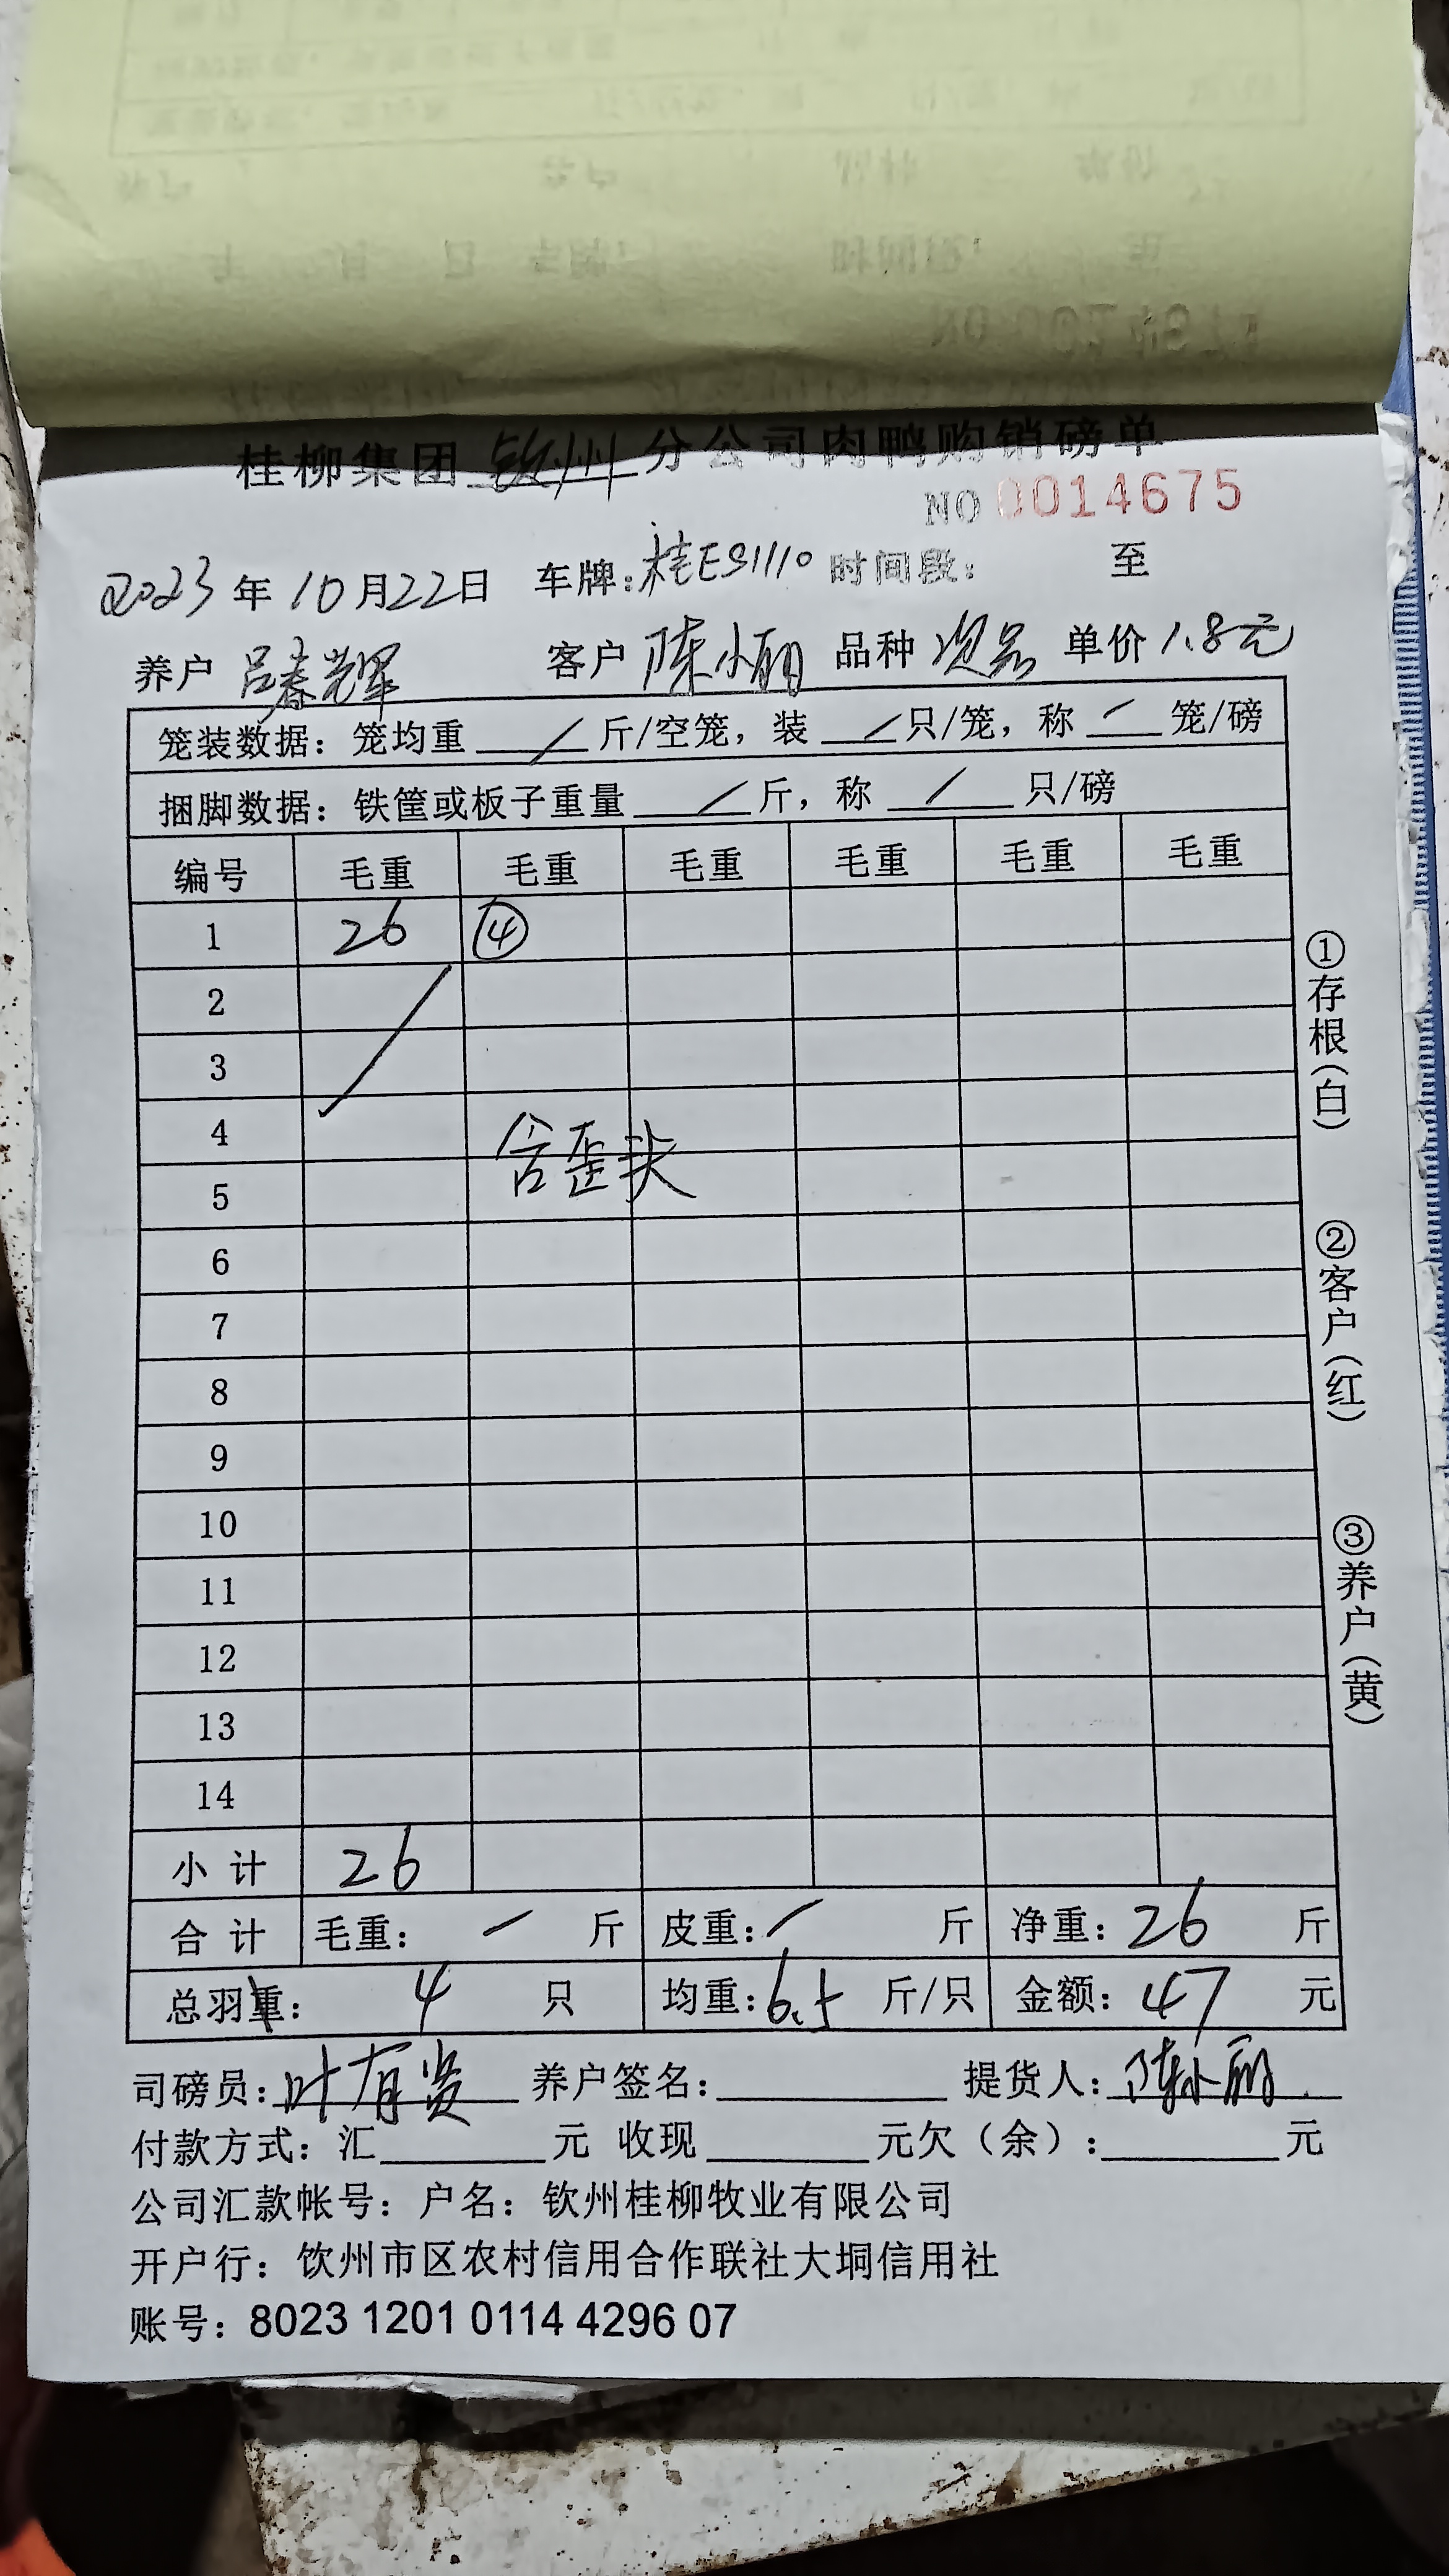 桂柳集团 钦州 分公司肉鸭购销磅单
NO 0014675
2023 年 10 月 22 日 车牌: 桂ES1110 时间段: 至
养户 吕春辉 客户 陈小丽 品种 次品 单价 1.8元
笼装数据: 笼均重 / 斤/空笼, 装 / 只/笼, 称 / 笼/磅
捆脚数据: 铁筐或板子重量 / 斤, 称 / 只/磅
编号 毛重 毛重 毛重 毛重 毛重 毛重
1 26 ④
2
3
4
含歪头
5
6
7
8
9
10
11
12
13
14
小计 26
合计 毛重: / 斤 皮重: / 斤 净重: 26 斤
总羽重: 4 只 均重: 6.5 斤/只 金额: 47 元
司磅员: 叶有贤 养户签名: 提货人: 陈小丽
付款方式: 汇 元 收现 元欠(余): 元
公司汇款帐号: 户名: 钦州桂柳牧业有限公司
开户行: 饮州市区农村信用合作联社大垌信用社
账号: 8023 1201 0114 4296 07
①存根(白)
②客户(红)
③养户(黄)